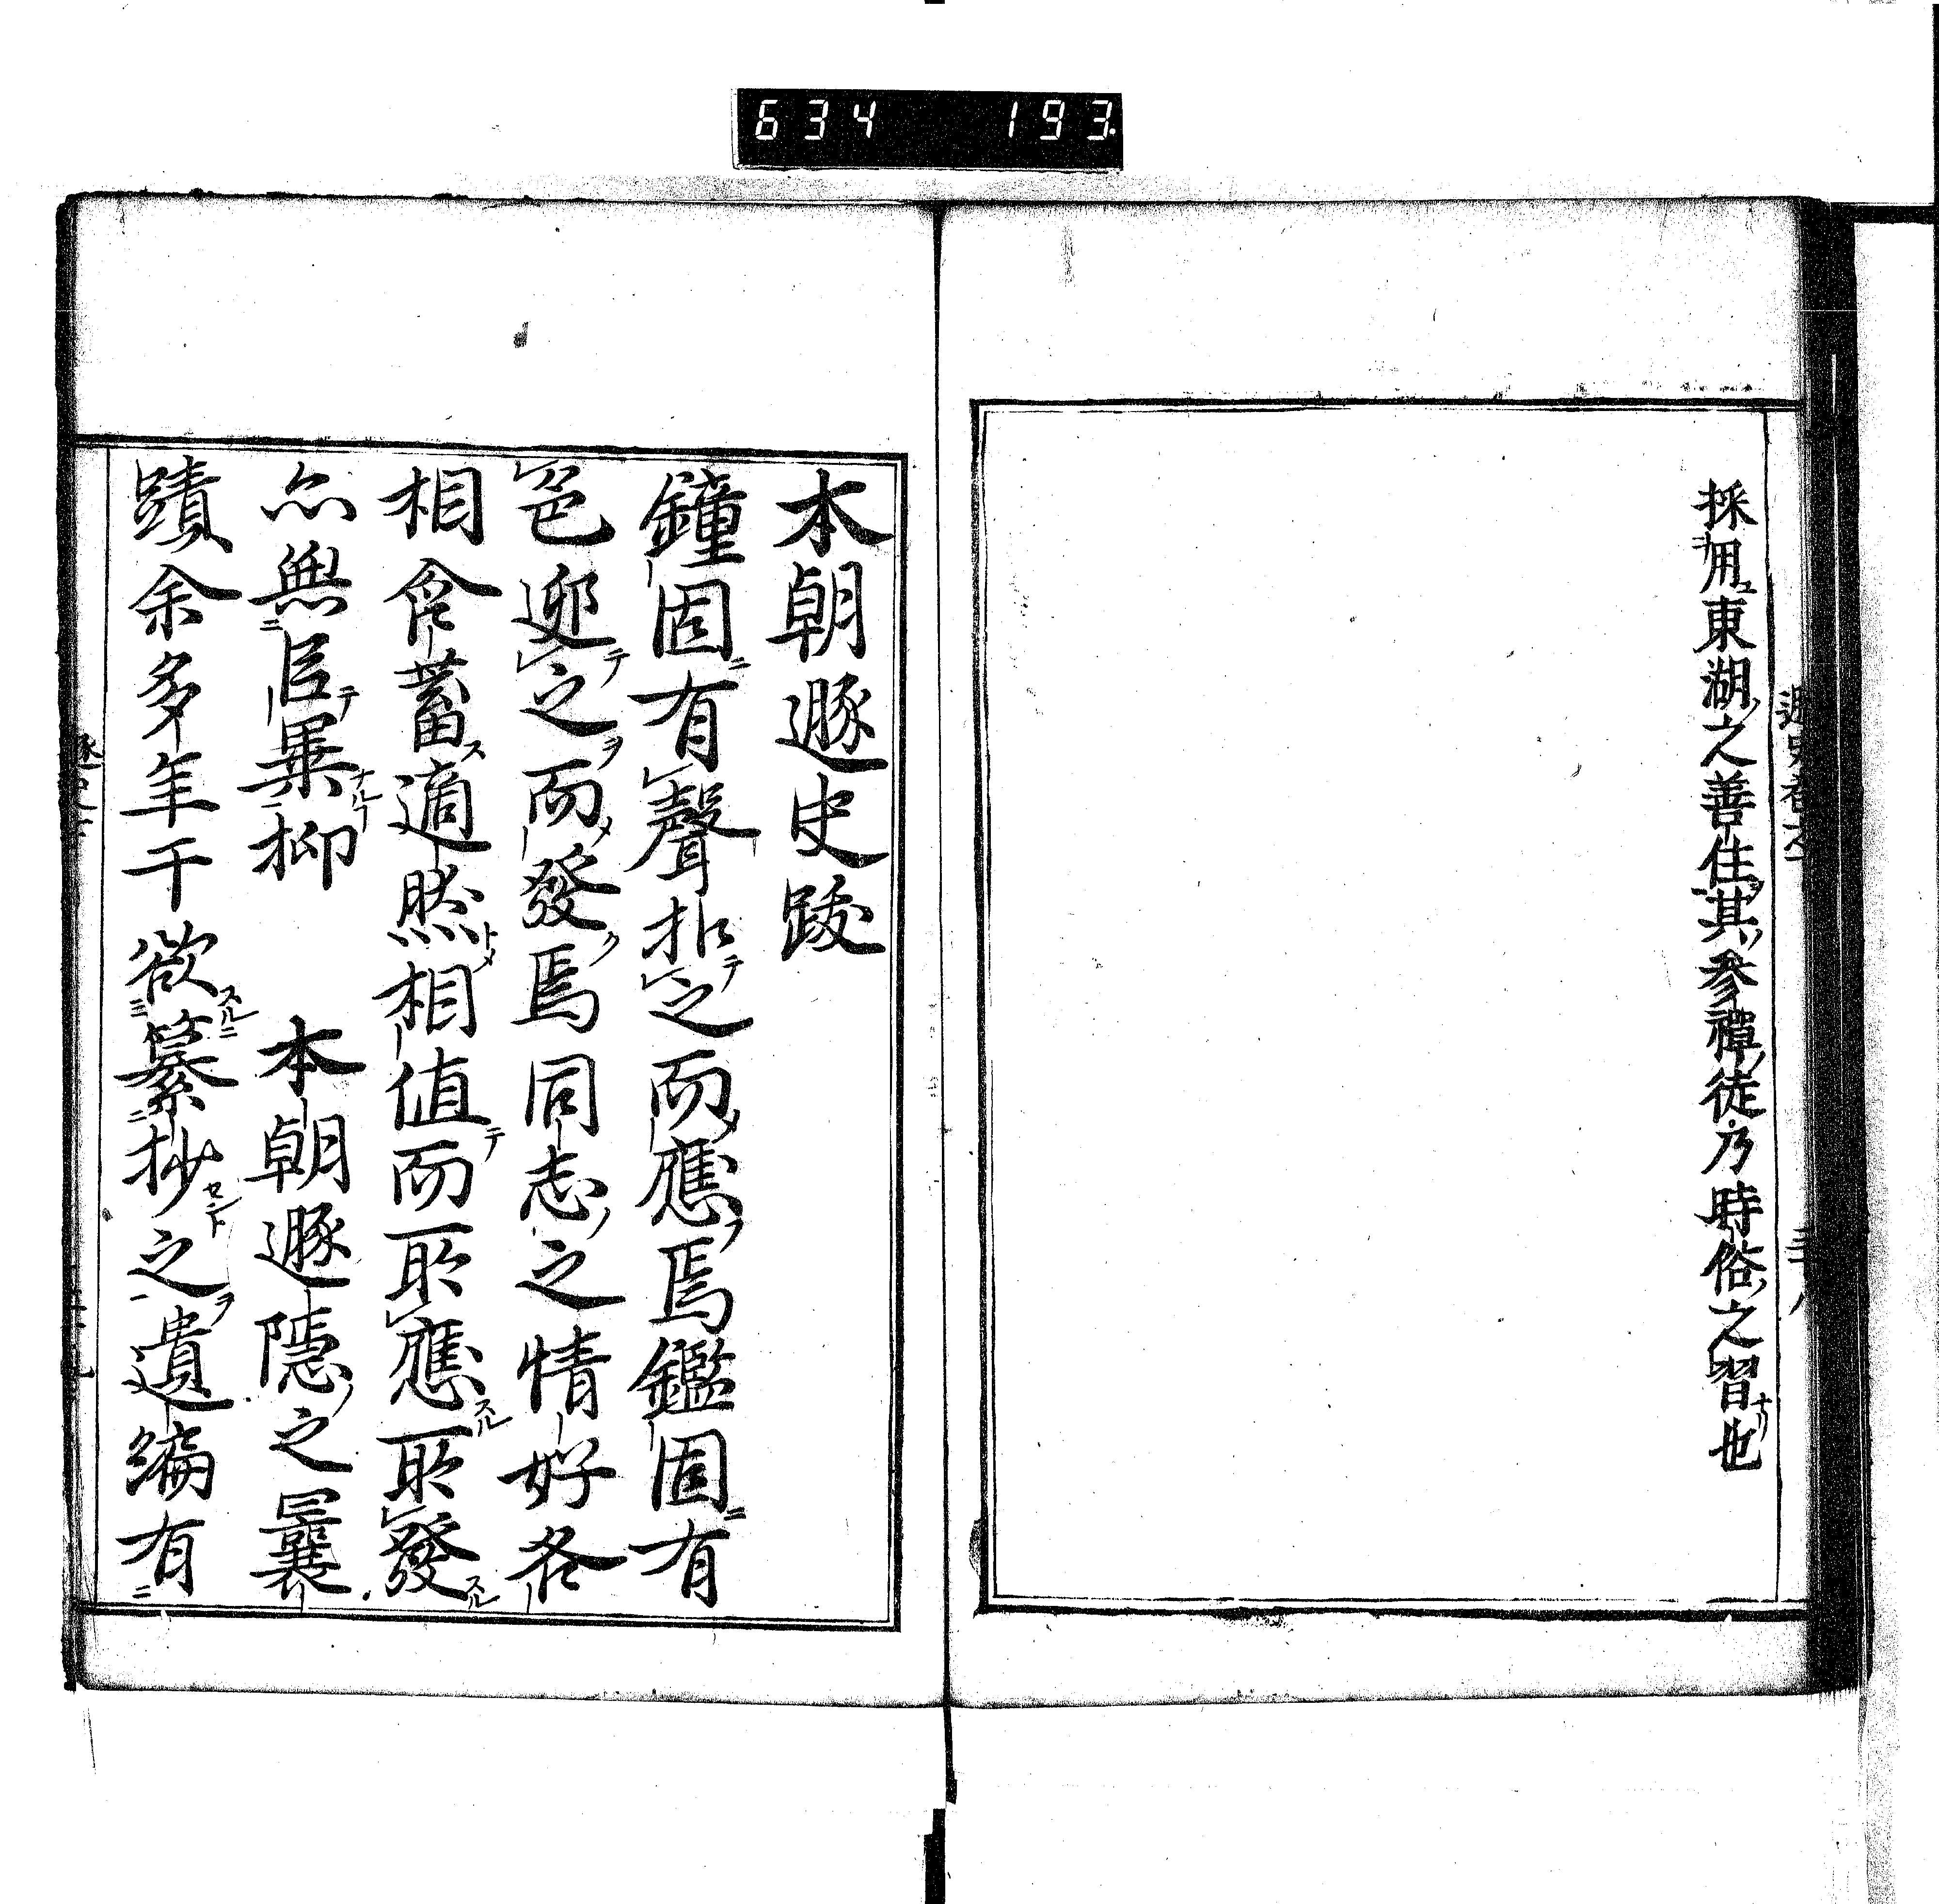 634 193
採用東湖之善住其參禪徒乃時俗之習也
本朝遯史跋
鐘固有聲扣之而應焉鑑固有
色迎之而發焉同志之情好各
相含蓄適然相值而所應所發
亦無啻畢抑 本朝遯隱之曩
蹟余多年于欲纂抄之遺編有